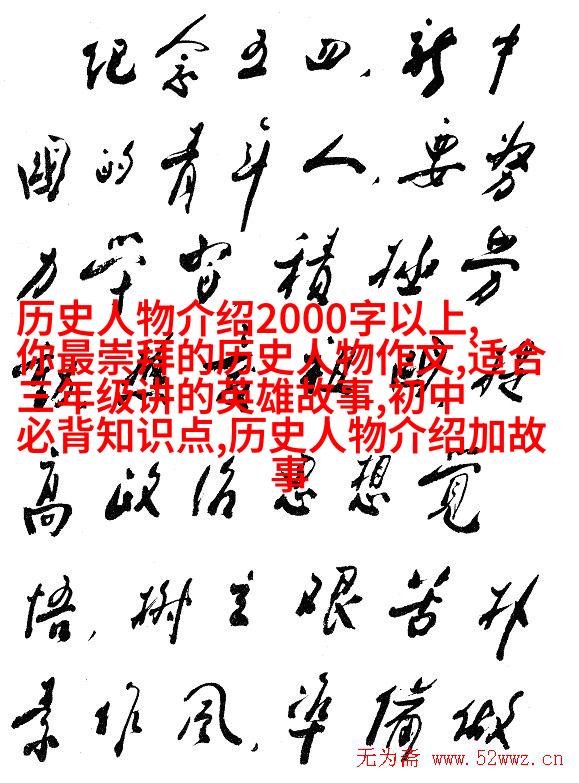 纪念五四,新中
國的青年人,要努
力学習積極劳
历史人物介绍2000字以上,
你最崇拜的历史人物作文,适合
三年级讲的英雄故事,初中
必背知识点,历史人物介绍加故
事
高政治思想覚
悟,树立艰苦朴
素作风,準備做
无为斋 www.52wwz.cn